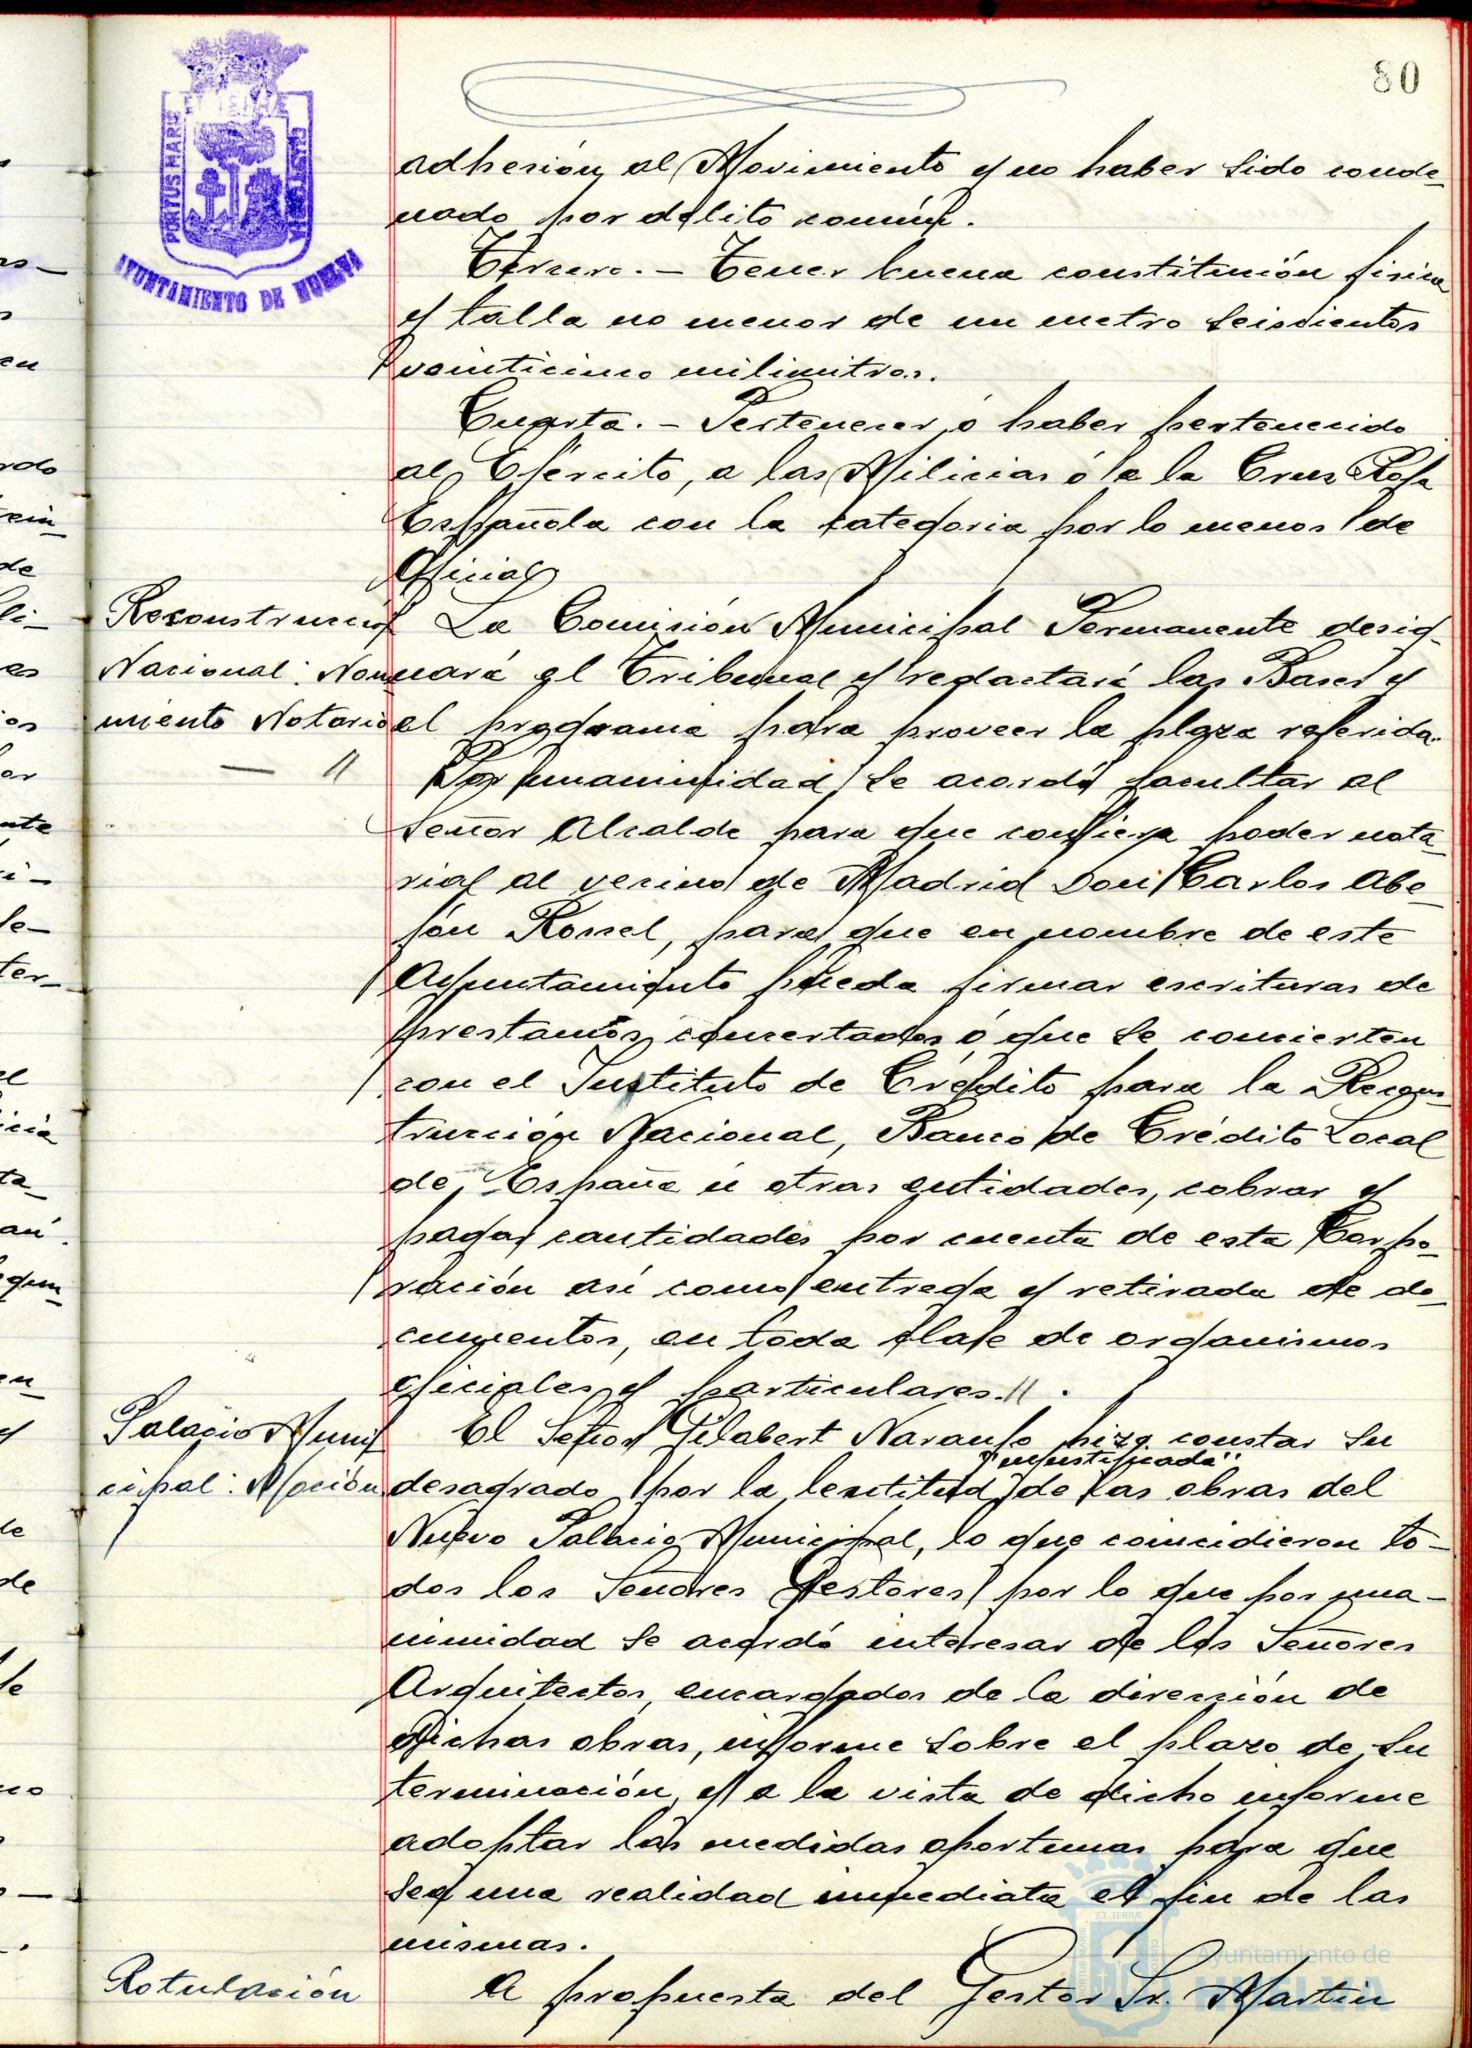 80
PORTUS MARIS ET TERRÆ CUSTODIA
AYUNTAMIENTO DE HUELVA
adhesión al Movimiento y no haber sido conde-
nado por delito común.
Tercero. - Tener buena constitución física
y talla no menor de un metro seiscientos
veinticinco milimitros.
Cuarta. - Pertenecer ó haber pertenecido
al Ejército, a las Milicias ó a la Cruz Roja
Española con la categoria por lo menos de
Oficial
Reconstrucción
Nacional: Nom
miento Notario
— "
La Comisión Municipal Permanente desig-
nará el Tribunal y redactará las Bases y
el programa para proveer la plaza referida.
Por unanimidad se acordó facultar al
Señor Alcalde para que confiera poder nota-
rial al vecino de Madrid Don Carlos Abe-
jón Rossel, para que en nombre de este
Ayuntamiento pueda firmar escrituras de
prestamos concertados ó que se concierten
con el Instituto de Crédito para la Recons-
trucción Nacional, Banco de Crédito Local
de España ú otras entidades, cobrar y
pagar cantidades por cuenta de esta Corpo-
ración así como entrega y retirada de do-
cumentos, en toda clase de organismos
oficiales y particulares.".
Palacio Muni
cipal: Moción
El Señor Gilabert Naranjo hizo constar su
"injustificada"
desagrado por la lentitud de las obras del
Nuevo Palacio Municipal, lo que coincidieron to-
dos los Señores Gestores por lo que por una-
nimidad se acordó interesar de los Señores
Arquitectos, encargados de la dirección de
dichas obras, informe sobre el plazo de su
terminación, y a la vista de dicho informe
adoptar las medidas oportunas para que
sea una realidad inmediata el fin de las
mismas.
Rotulación
A propuesta del Gestor Sr. Martin
Ayuntamiento de
HUELVA